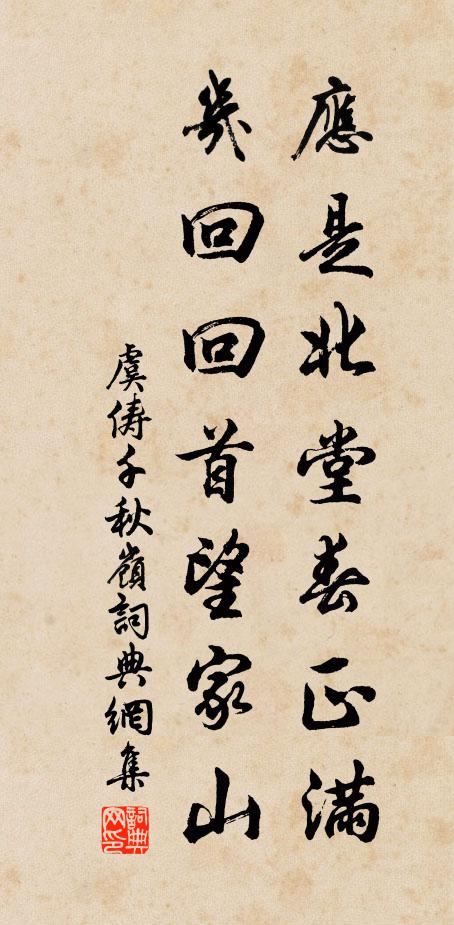 應是北堂春正滿
幾回回首望家山
虞儔千秋嶺詞典網集
詞典网印